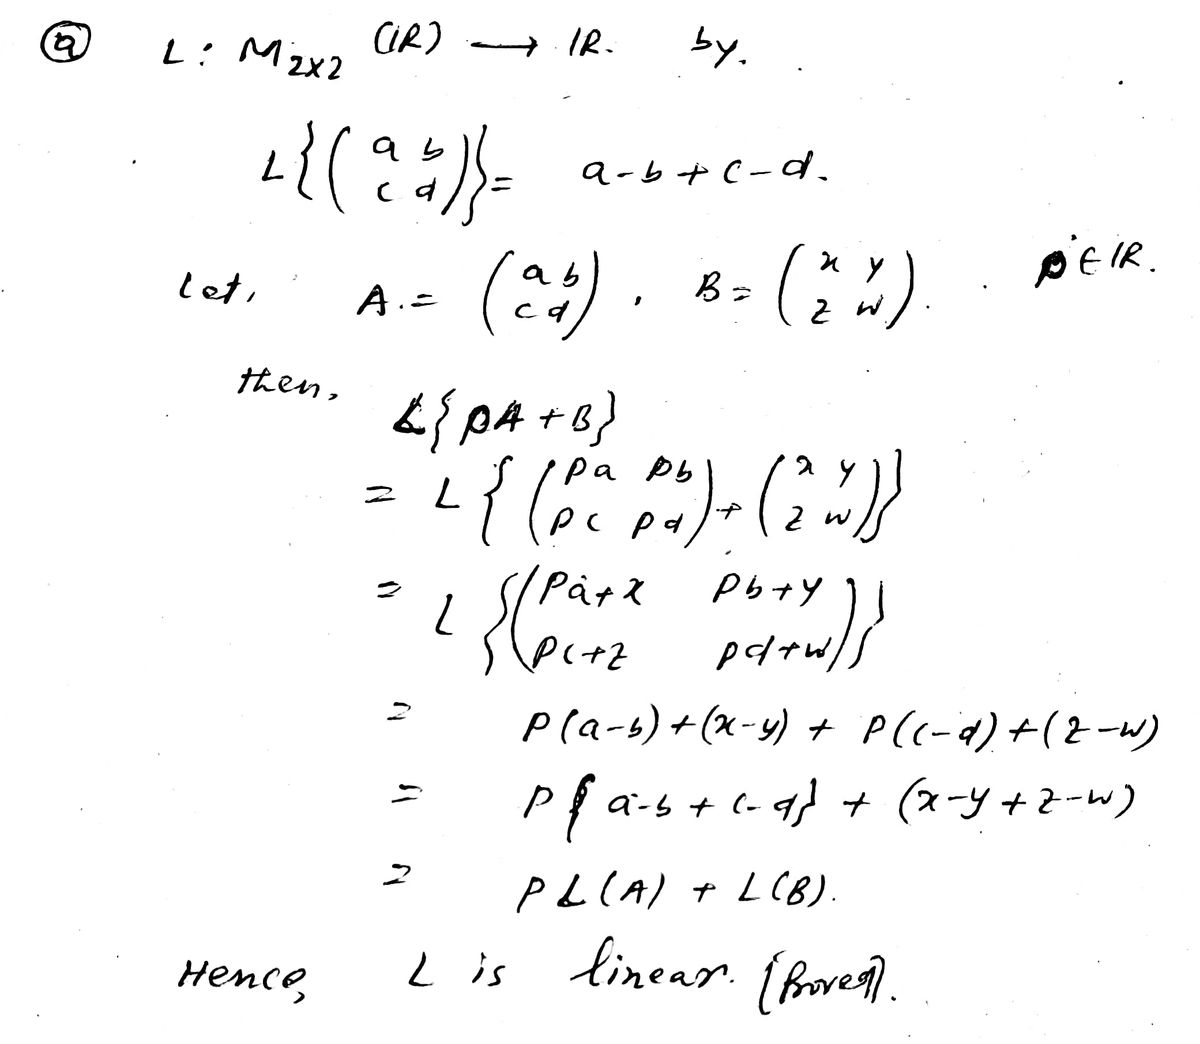 (a) L : M2x2 (IR) → IR. by.
L{( a b
c d )} = a-b+c-d.
Let, A. = ( a b
c d ) , B = ( x y
z w ) . p ∈ IR.
then,
L{ pA + B}
= L { ( pa pb
pc pd ) + ( x y
z w ) }
= L { ( Pa+x Pb+y
Pc+z pd+w ) }
= P(a-b)+(x-y) + P(c-d)+(z-w)
= P { a-b + c-d} + (x-y+z-w)
= P L(A) + L(B).
Hence, L is linear. [Proved].